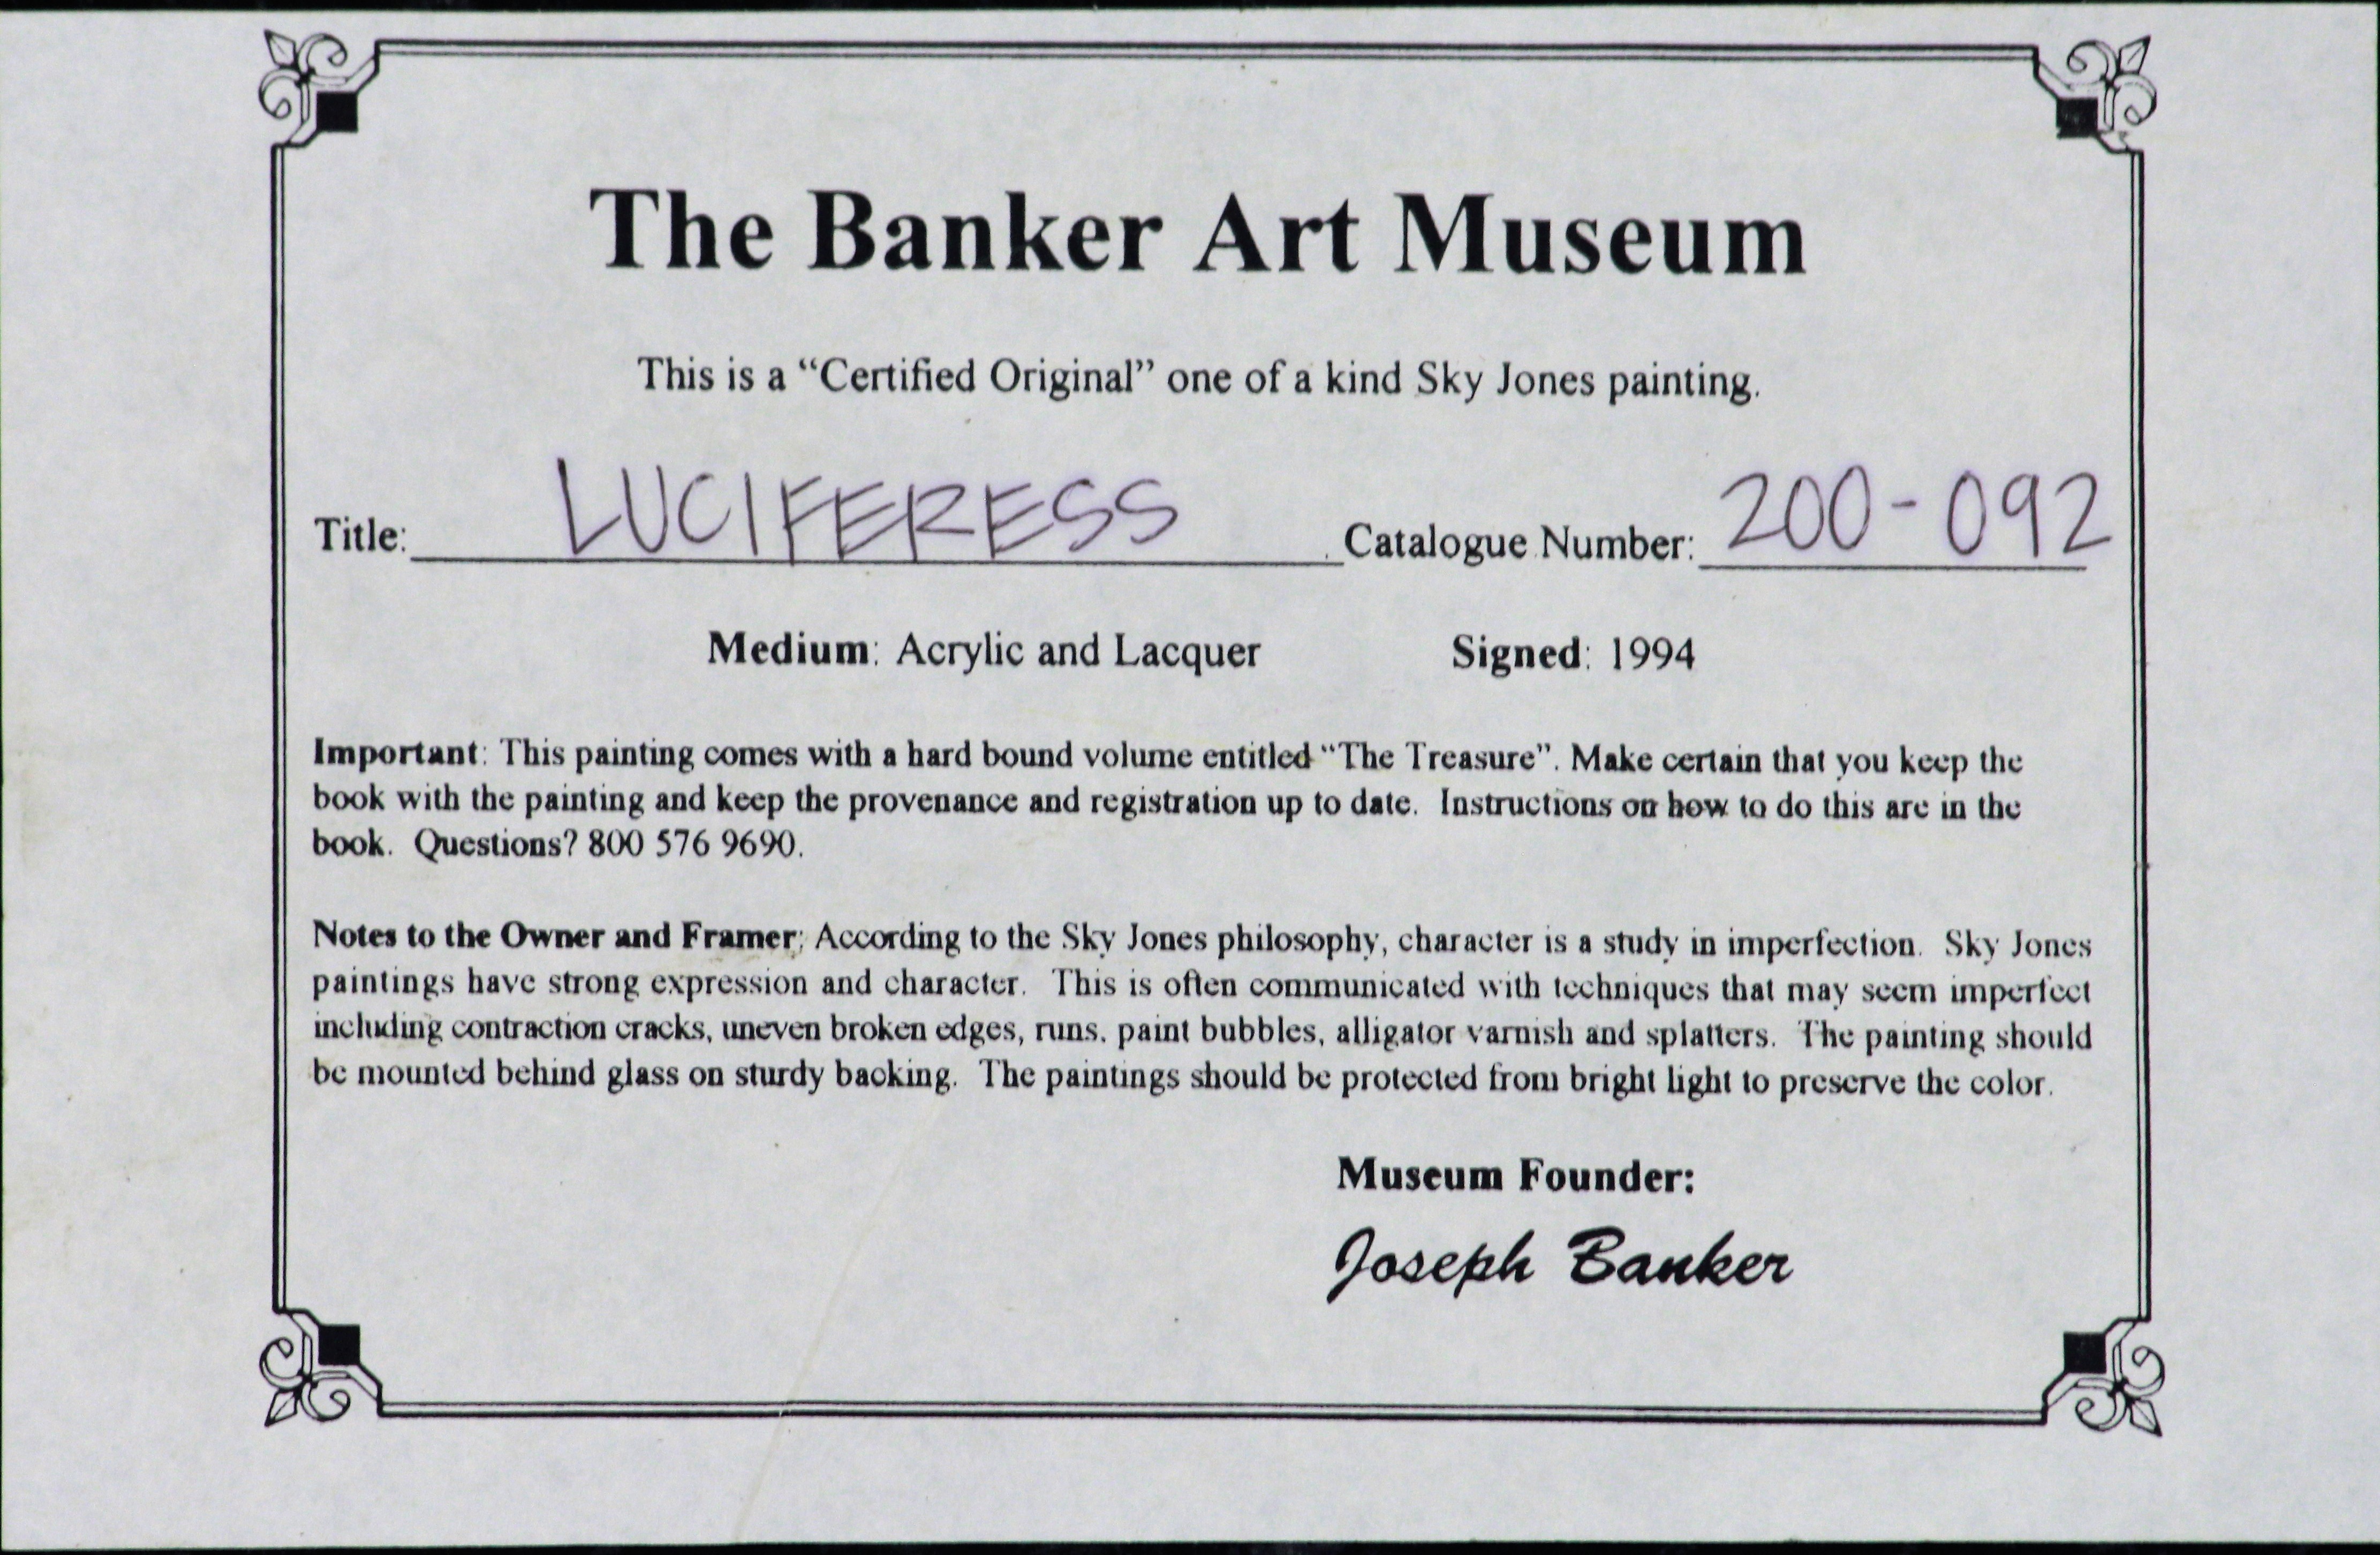 The Banker Art Museum
This is a “Certified Original” one of a kind Sky Jones painting.
Title: LUCIFERESS Catalogue Number: 200-092
Medium: Acrylic and Lacquer Signed: 1994
Important: This painting comes with a hard bound volume entitled “The Treasure”. Make certain that you keep the
book with the painting and keep the provenance and registration up to date. Instructions on how to do this are in the
book. Questions? 800 576 9690.
Notes to the Owner and Framer; According to the Sky Jones philosophy, character is a study in imperfection. Sky Jones
paintings have strong expression and character. This is often communicated with techniques that may seem imperfect
including contraction cracks, uneven broken edges, runs, paint bubbles, alligator varnish and splatters. The painting should
be mounted behind glass on sturdy backing. The paintings should be protected from bright light to preserve the color.
Museum Founder:
Joseph Banker